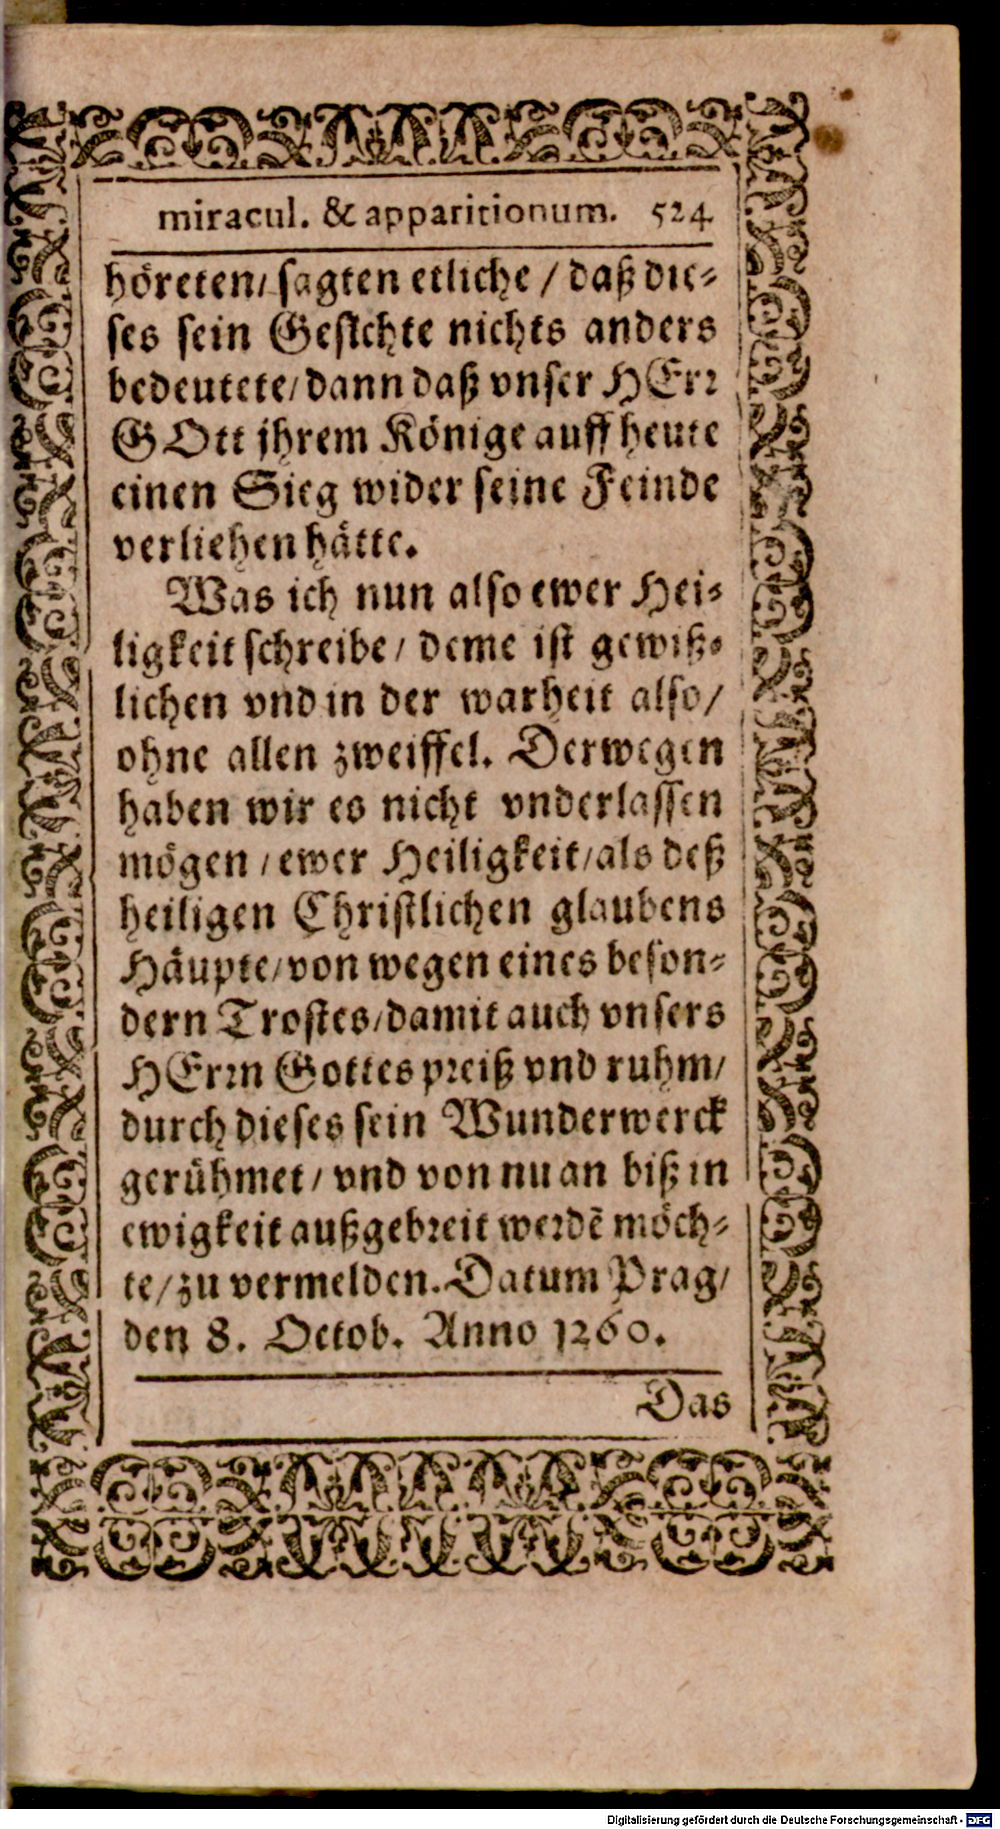 miracul. & apparitionum. 524
höreten/ sagten etliche / daß die-
ses sein Gesichte nichts anders
bedeutete/ dann daß vnser HErr
GOtt jhrem Könige auff heute
einen Sieg wider seine Feinde
verliehen hätte.
Was ich nun also ewer Hei-
ligkeit schreibe / deme ist gewiß-
lichen vnd in der warheit also/
ohne allen zweiffel. Derwegen
haben wir es nicht vnderlassen
mögen / ewer Heiligkeit/ als deß
heiligen Christlichen glaubens
Häupte/ von wegen eines beson-
dern Trostes/ damit auch vnsers
HErrn Gottes preiß vnd ruhm/
durch dieses sein Wunderwerck
gerühmet / vnd von nu an biß in
ewigkeit außgebreit werdē möch-
te/ zu vermelden. Datum Prag/
den 8. Octob. Anno 1260.
Das
Digitalisierung gefördert durch die Deutsche Forschungsgemeinschaft - DFG